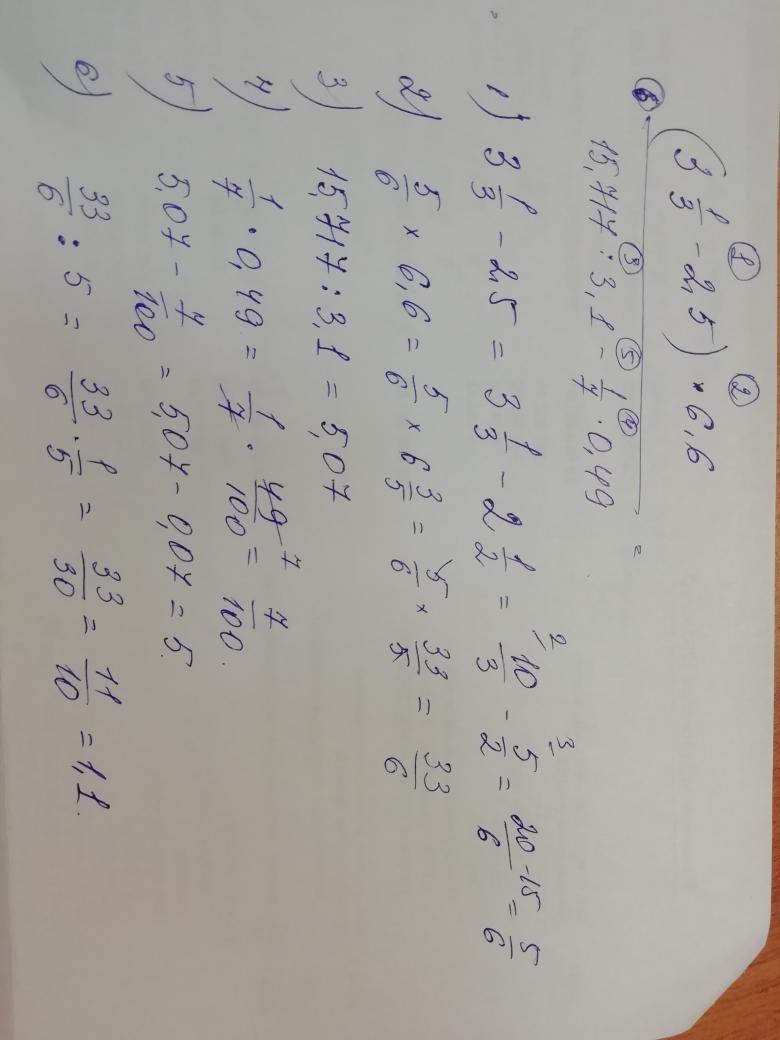 (3 1/3 - 2,5) × 6,6
15,717 : 3,1 - 1/7 · 0,49 =
1) 3 1/3 - 2,5 = 3 1/3 - 2 1/2 = 10/3 - 5/2 = 20-15/6 = 5/6
2) 5/6 × 6,6 = 5/6 × 6 3/5 = 5/6 × 33/5 = 33/6
3) 15,717 : 3,1 = 5,07
4) 1/7 · 0,49 = 1/7 · 49/100 = 7/100.
5) 5,07 - 7/100 = 5,07 - 0,07 = 5.
6) 33/6 : 5 = 33/6 · 1/5 = 33/30 = 11/10 = 1,1.